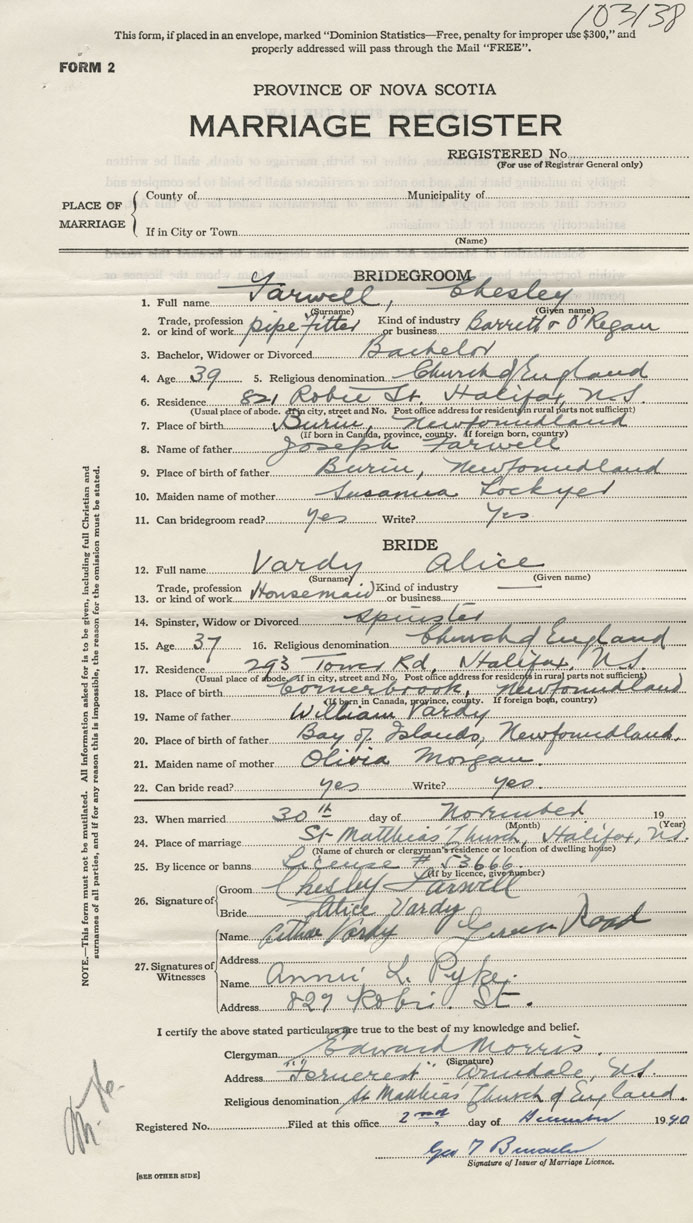 103138
This form, if placed in an envelope, marked "Dominion Statistics—Free, penalty for improper use $300," and
properly addressed will pass through the Mail "FREE".
FORM 2
PROVINCE OF NOVA SCOTIA
MARRIAGE REGISTER
REGISTERED No.
(For use of Registrar General only)
PLACE OF MARRIAGE
County of Municipality of
If in City or Town
(Name)
BRIDEGROOM
1. Full name Farwell, Chesley
(Surname) (Given name)
2. Trade, profession or kind of work pipe fitter Kind of industry or business Barrett & O'Regan
3. Bachelor, Widower or Divorced Bachelor
4. Age 39 5. Religious denomination Church of England
6. Residence 821 Robie St. Halifax, N.S.
(Usual place of abode. If in city, street and No. Post office address for residents in rural parts not sufficient)
7. Place of birth Burin, Newfoundland
(If born in Canada, province, county. If foreign born, country)
8. Name of father Joseph Farwell
9. Place of birth of father Burin, Newfoundland
10. Maiden name of mother Susanna Lockyer
11. Can bridegroom read? yes Write? yes
BRIDE
12. Full name Vardy Alice
(Surname) (Given name)
13. Trade, profession or kind of work Housemaid Kind of industry or business —
14. Spinster, Widow or Divorced spinster
15. Age 37 16. Religious denomination Church of England
17. Residence 293 Tower Rd, Halifax, N.S.
(Usual place of abode. If in city, street and No. Post office address for residents in rural parts not sufficient)
18. Place of birth Cornerbrook, Newfoundland
(If born in Canada, province, county. If foreign born, country)
19. Name of father William Vardy
20. Place of birth of father Bay of Islands, Newfoundland.
21. Maiden name of mother Olivia Morgan.
22. Can bride read? yes Write? yes.
23. When married 30th day of November 19
(Month) (Year)
24. Place of marriage St Matthias Church, Halifax, N.S.
(Name of church or clergyman's residence or location of dwelling house)
25. By licence or banns License # 53666.
(If by licence, give number)
26. Signature of
Groom Chesley Farwell
Bride Alice Vardy
27. Signatures of Witnesses
Name Vardy Road
Address
Name Annie L. Pyke.
Address 827 Robie St.
I certify the above stated particulars are true to the best of my knowledge and belief.
Clergyman Edward Morris.
(Signature)
Address "Ferncrest" Armdale, N.S.
Religious denomination St Matthias' Church of England.
Registered No. Filed at this office 2nd day of December 1940
Geo T
Signature of Issuer of Marriage Licence.
[SEE OTHER SIDE]
NOTE.—This form must not be mutilated. All information asked for is to be given, including full Christian and
surnames of all parties, and if for any reason this is impossible, the reason for the omission must be stated.